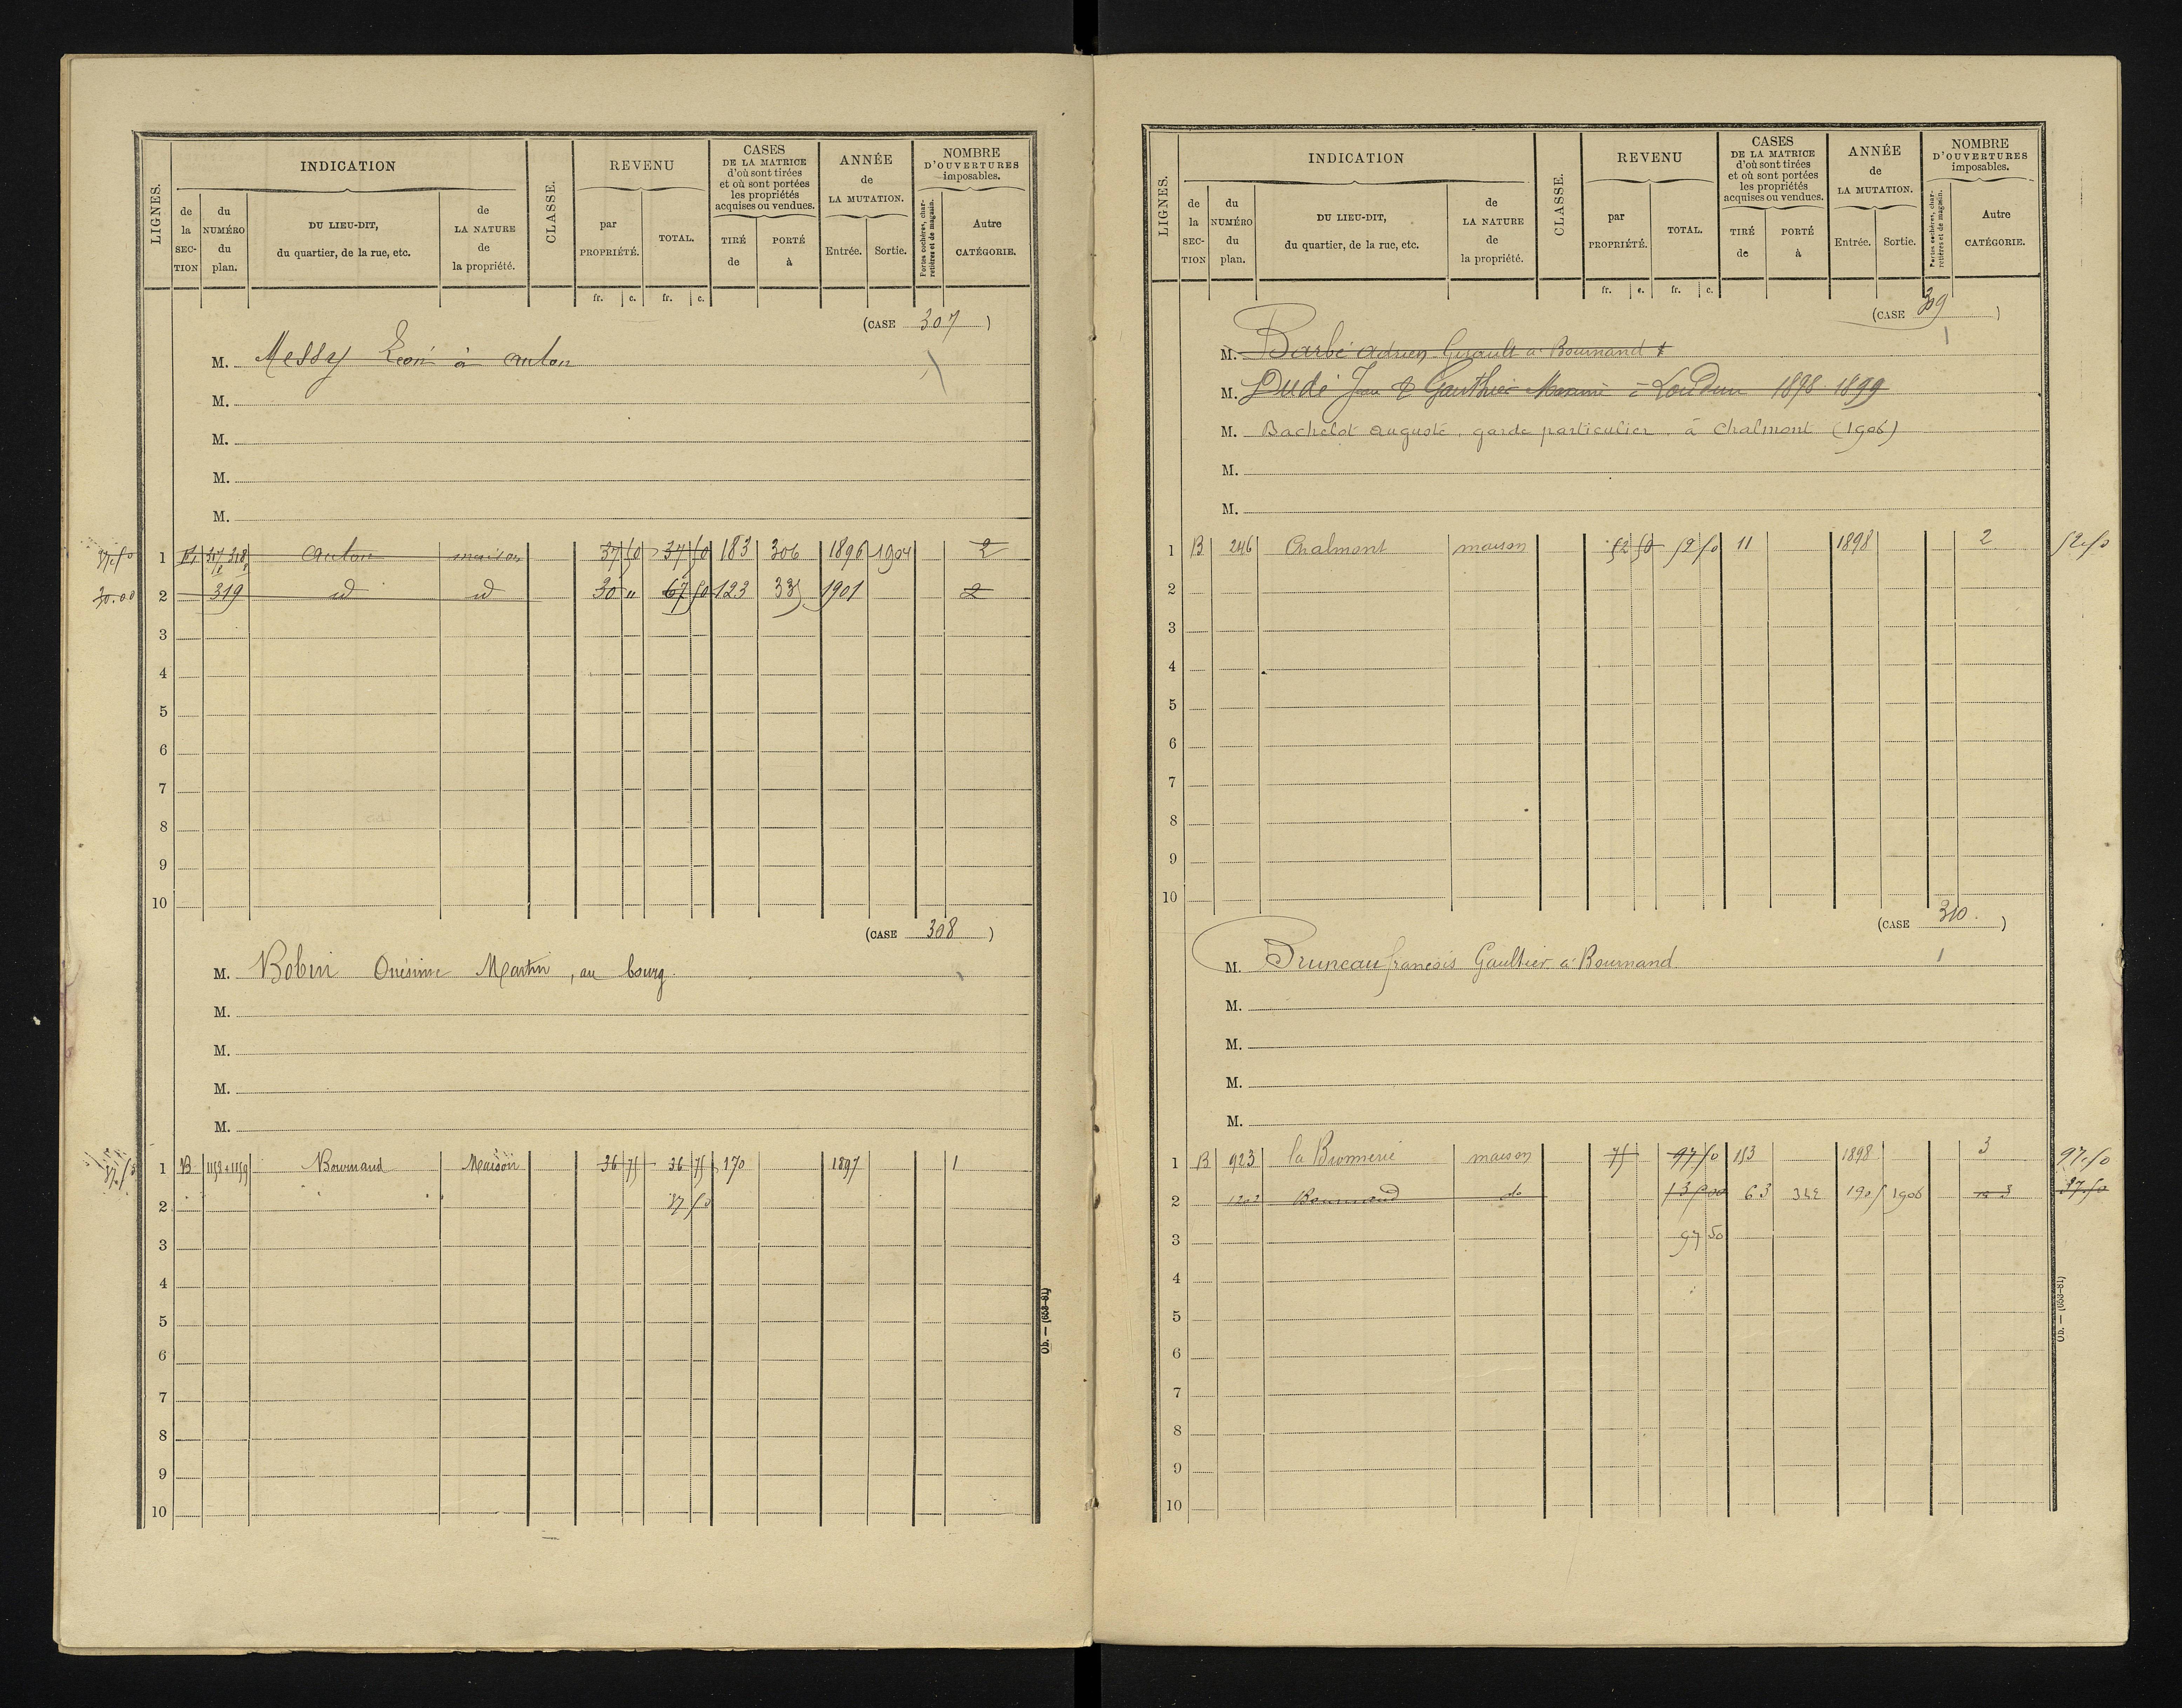 LIGNES.
INDICATION
de la SECTION
du NUMÉRO du plan.
DU LIEU-DIT, du quartier, de la rue, etc.
de LA NATURE de la propriété.
CLASSE.
REVENU
par PROPRIÉTÉ.
TOTAL.
fr. c. fr. c.
CASES DE LA MATRICE d'où sont tirées et où sont portées les propriétés acquises ou vendues.
TIRÉ de
PORTÉ à
ANNÉE de LA MUTATION.
Entrée. Sortie.
NOMBRE D'OUVERTURES imposables.
Portes cochères, charretières et de magasin.
Autre CATÉGORIE.
(CASE 307)
M. Messy Léon à anton
M.
M.
M.
M.
1 317 318 anton maison 37 50 37 50 183 306 1896 1904 2
30.00 2 319 id id 30 " 67 50 123 335 1901 2
3
4
5
6
7
8
9
10
(CASE 308)
M. Bobin Onésime Martin, au bourg.
M.
M.
M.
M.
1 B 1158 + 1159 Bournand Maison 36 75 36 75 170 1897 1
2 37 50
3
4
5
6
7
8
9
10
Ob. — (638-81)
LIGNES.
INDICATION
de la SECTION
du NUMÉRO du plan.
DU LIEU-DIT, du quartier, de la rue, etc.
de LA NATURE de la propriété.
CLASSE.
REVENU
par PROPRIÉTÉ.
TOTAL.
fr. c. fr. c.
CASES DE LA MATRICE d'où sont tirées et où sont portées les propriétés acquises ou vendues.
TIRÉ de
PORTÉ à
ANNÉE de LA MUTATION.
Entrée. Sortie.
NOMBRE D'OUVERTURES imposables.
Portes cochères, charretières et de magasin.
Autre CATÉGORIE.
(CASE 309)
M. Barbé adrien Girault à Bournand
M. Dudé Jean & Gauthier Maximé à Loudun 1898-1899
M. Bachelot auguste, garde particulier, à Chalmont (1906)
M.
M.
1 B 246 Chalmont maison 52 50 52 50 11 1898 2 52.50
2
3
4
5
6
7
8
9
10
(CASE 310.)
M. Pruneau françois Gaultier à Bournand
M.
M.
M.
M.
1 B 923 la Bionnerie maison 75 97 50 153 1898 3 97.50
2 1202 Bournand do 135 00 63 342 1905 1906 3 37.50
3 97 50
4
5
6
7
8
9
10
Ob. — (638-81)